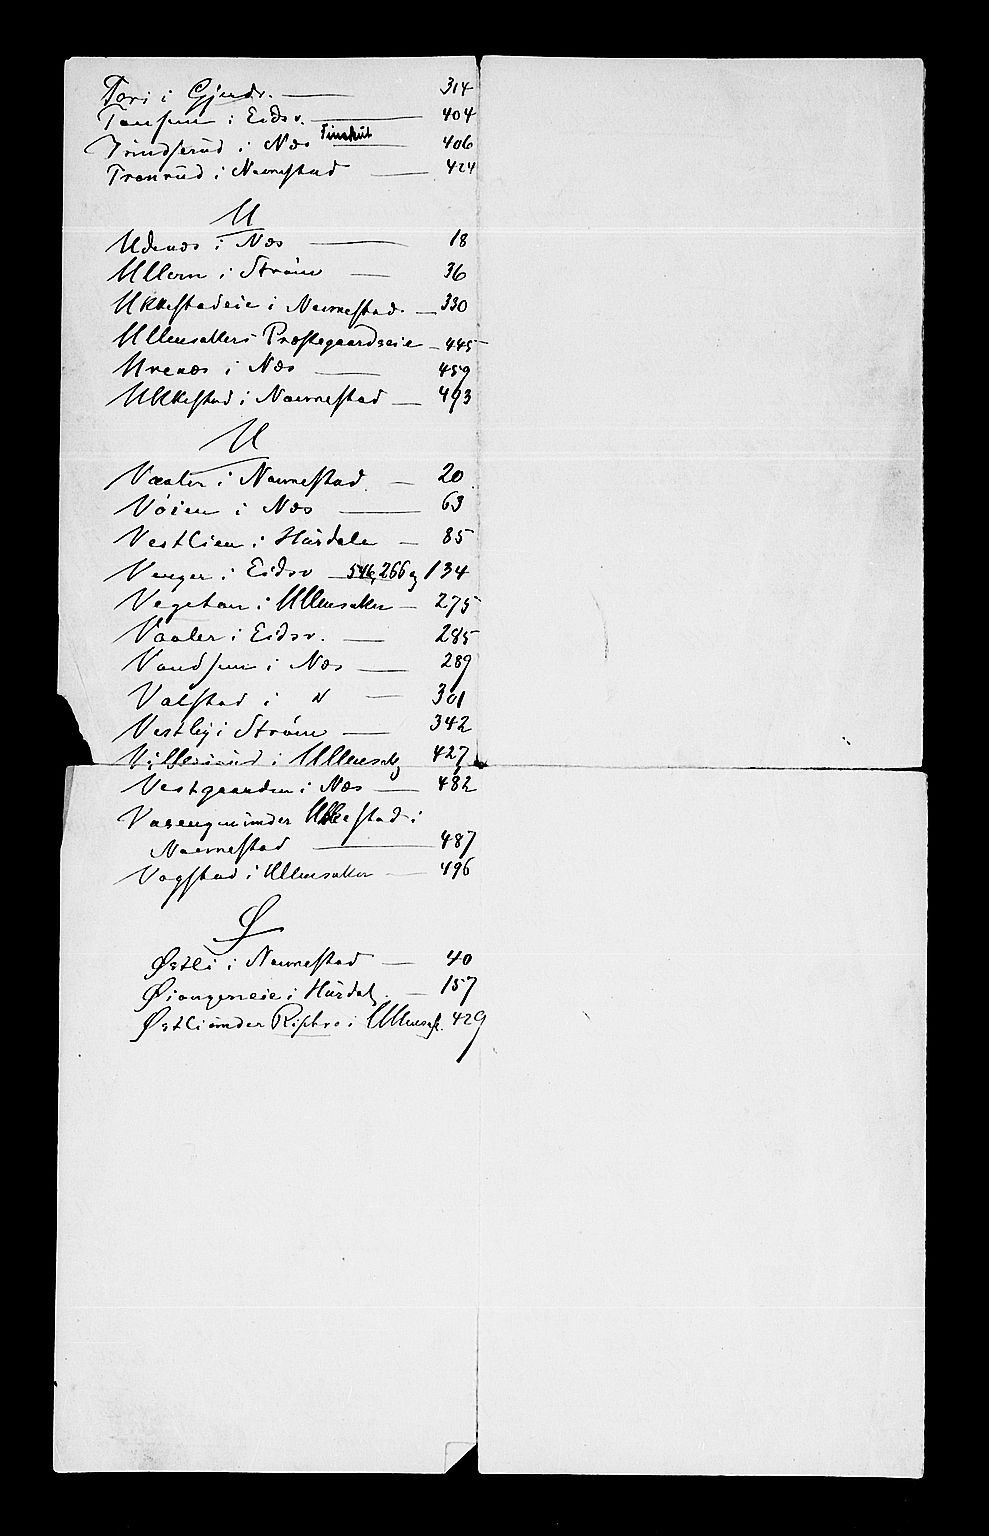 Tori i Gjerdr. — 314
Tønsen i Eidsv. — 404
Trindserud i Næs Tinghus — 406
Tronrud i Nannestad — 424
U
Udenæs i Næs — 18
Ullern i Strøm — 36
Ukkestadeie i Nannestad — 330
Ullensakers Præstegaardseie — 445
Urenæs i Næs — 459
Ukkestad i Nannestad — 493
V
Vaaler i Nannestad — 20
Vöien i Næs — 63
Vestlien i Hurdalen — 85
Venger i Eidsv — 546, 266 og 134
Vegetan i Ullensaker — 275
Vaaler i Eidsv. — 285
Vandsem i Næs — 289
Valstad i N — 301
Vestby i Strøm — 342
i Ullensak — 427
Vestgaarden i Næs — 482
Vasengen under Ukkestad i
Nannestad — 487
Vogstad i Ullensaker — 496
Ø
Østli i Nannestad — 40
Øiangeneie i Hurdal — 157
Østli under Risebro i Ullensak. 429